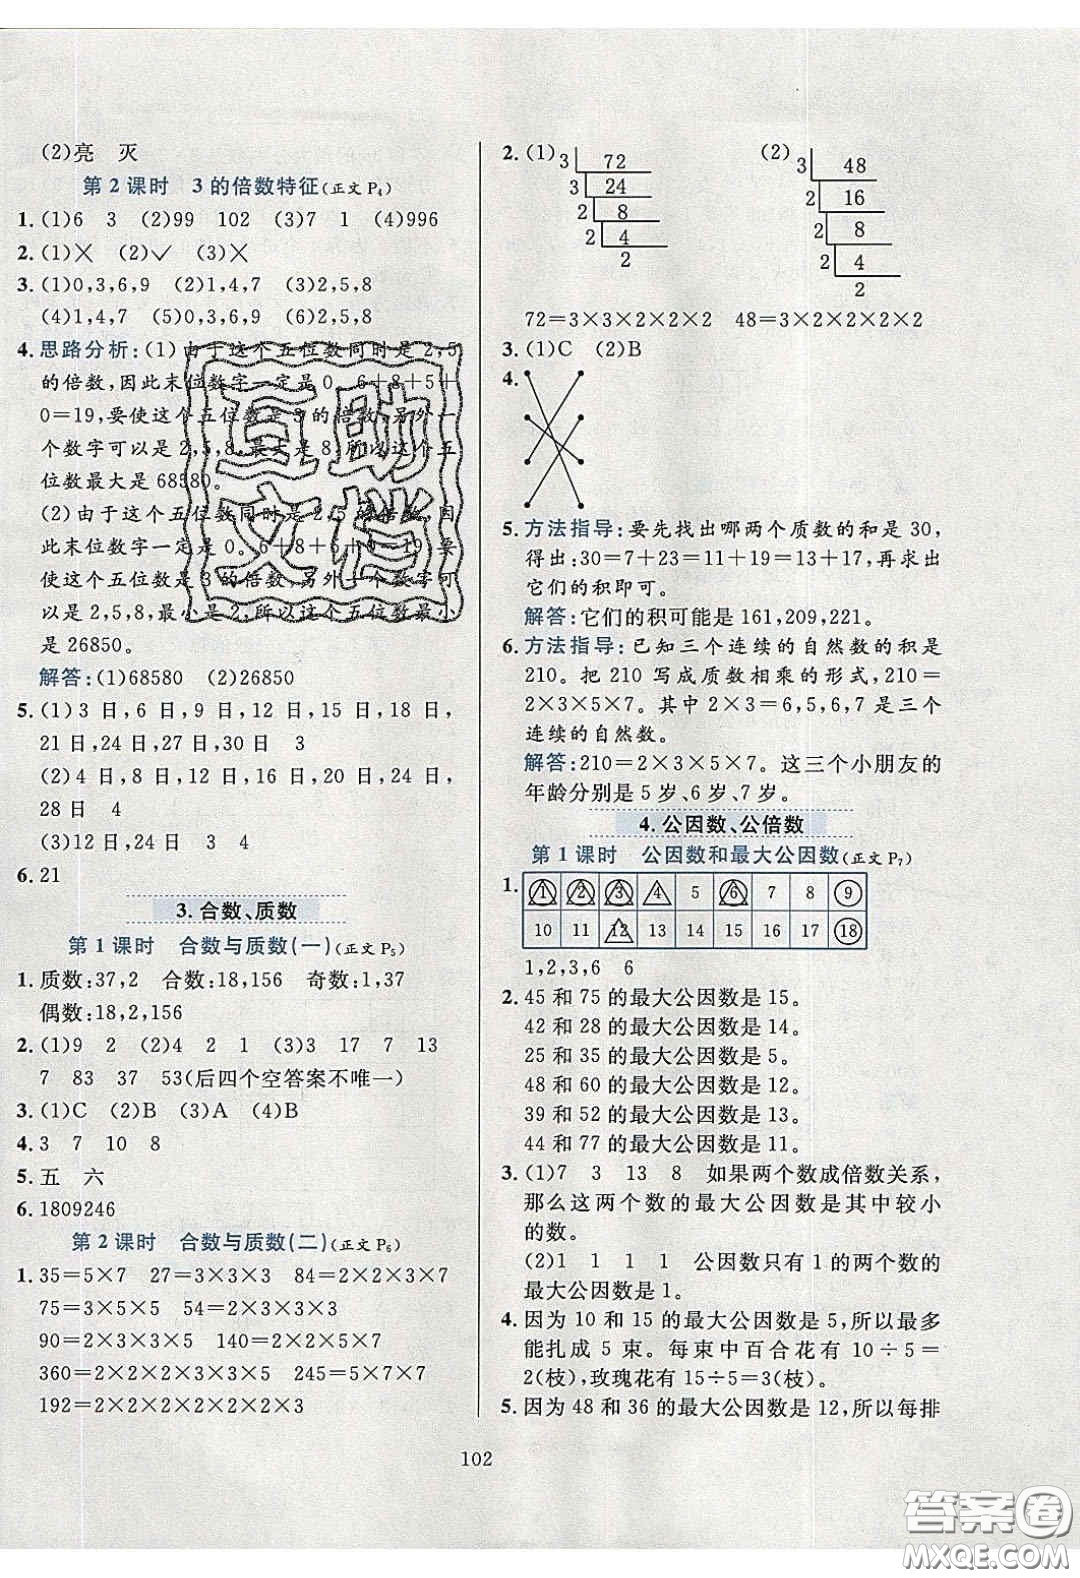 (2)亮 灭
第2课时 3的倍数特征(正文P₄)
1. (1)6 3 (2)99 102 (3)7 1 (4)996
2. (1)✕ (2)✓ (3)✕
3. (1)0,3,6,9 (2)1,4,7 (3)2,5,8
(4)1,4,7 (5)0,3,6,9 (6)2,5,8
4. 思路分析:(1)由于这个五位数同时是2,5
的倍数,因此末位数字一定是0。6+8+5+
0=19,要使这个五位数是3的倍数,另外一
个数字可以是2,5,8,最大是8,所以这个五
位数最大是68580。
(2)由于这个五位数同时是2,5的倍数,因
此末位数字一定是0。6+8+5+0=19,要
使这个五位数是3的倍数,另外一个数字可
以是2,5,8,最小是2,所以这个五位数最小
是26850。
解答:(1)68580 (2)26850
5. (1)3日,6日,9日,12日,15日,18日,
21日,24日,27日,30日 3
(2)4日,8日,12日,16日,20日,24日,
28日 4
(3)12日,24日 3 4
6. 21
3. 合数、质数
第1课时 合数与质数(一)(正文P₅)
1. 质数:37,2 合数:18,156 奇数:1,37
偶数:18,2,156
2. (1)9 2 (2)4 2 1 (3)3 17 7 13
7 83 37 53(后四个空答案不唯一)
3. (1)C (2)B (3)A (4)B
4. 3 7 10 8
5. 五 六
6. 1809246
第2课时 合数与质数(二)(正文P₆)
1. 35=5×7 27=3×3×3 84=2×2×3×7
75=3×5×5 54=2×3×3×3
90=2×3×3×5 140=2×2×5×7
360=2×2×2×3×3×5 245=5×7×7
192=2×2×2×2×2×2×3
2. (1) 3 72 (2) 3 48
3 24 2 16
2 8 2 8
2 4 2 4
2 2
72=3×3×2×2×2 48=3×2×2×2×2
3. (1)C (2)B
4.
5. 方法指导:要先找出哪两个质数的和是30,
得出:30=7+23=11+19=13+17,再求出
它们的积即可。
解答:它们的积可能是161,209,221。
6. 方法指导:已知三个连续的自然数的积是
210。把210写成质数相乘的形式,210=
2×3×5×7。其中2×3=6,5,6,7是三个
连续的自然数。
解答:210=2×3×5×7。这三个小朋友的
年龄分别是5岁、6岁、7岁。
4. 公因数、公倍数
第1课时 公因数和最大公因数(正文P₇)
1. 1 2 3 4 5 6 7 8 9
10 11 12 13 14 15 16 17 18
1,2,3,6 6
2. 45和75的最大公因数是15。
42和28的最大公因数是14。
25和35的最大公因数是5。
48和60的最大公因数是12。
39和52的最大公因数是13。
44和77的最大公因数是11。
3. (1)7 3 13 8 如果两个数成倍数关系,
那么这两个数的最大公因数是其中较小
的数。
(2)1 1 1 1 公因数只有1的两个数的
最大公因数是1。
4. 因为10和15的最大公因数是5,所以最多
能扎成5束。每束中百合花有10÷5=
2(枝),玫瑰花有15÷5=3(枝)。
5. 因为48和36的最大公因数是12,所以每排
102
互助
文档
答案卷
MXQE.COM